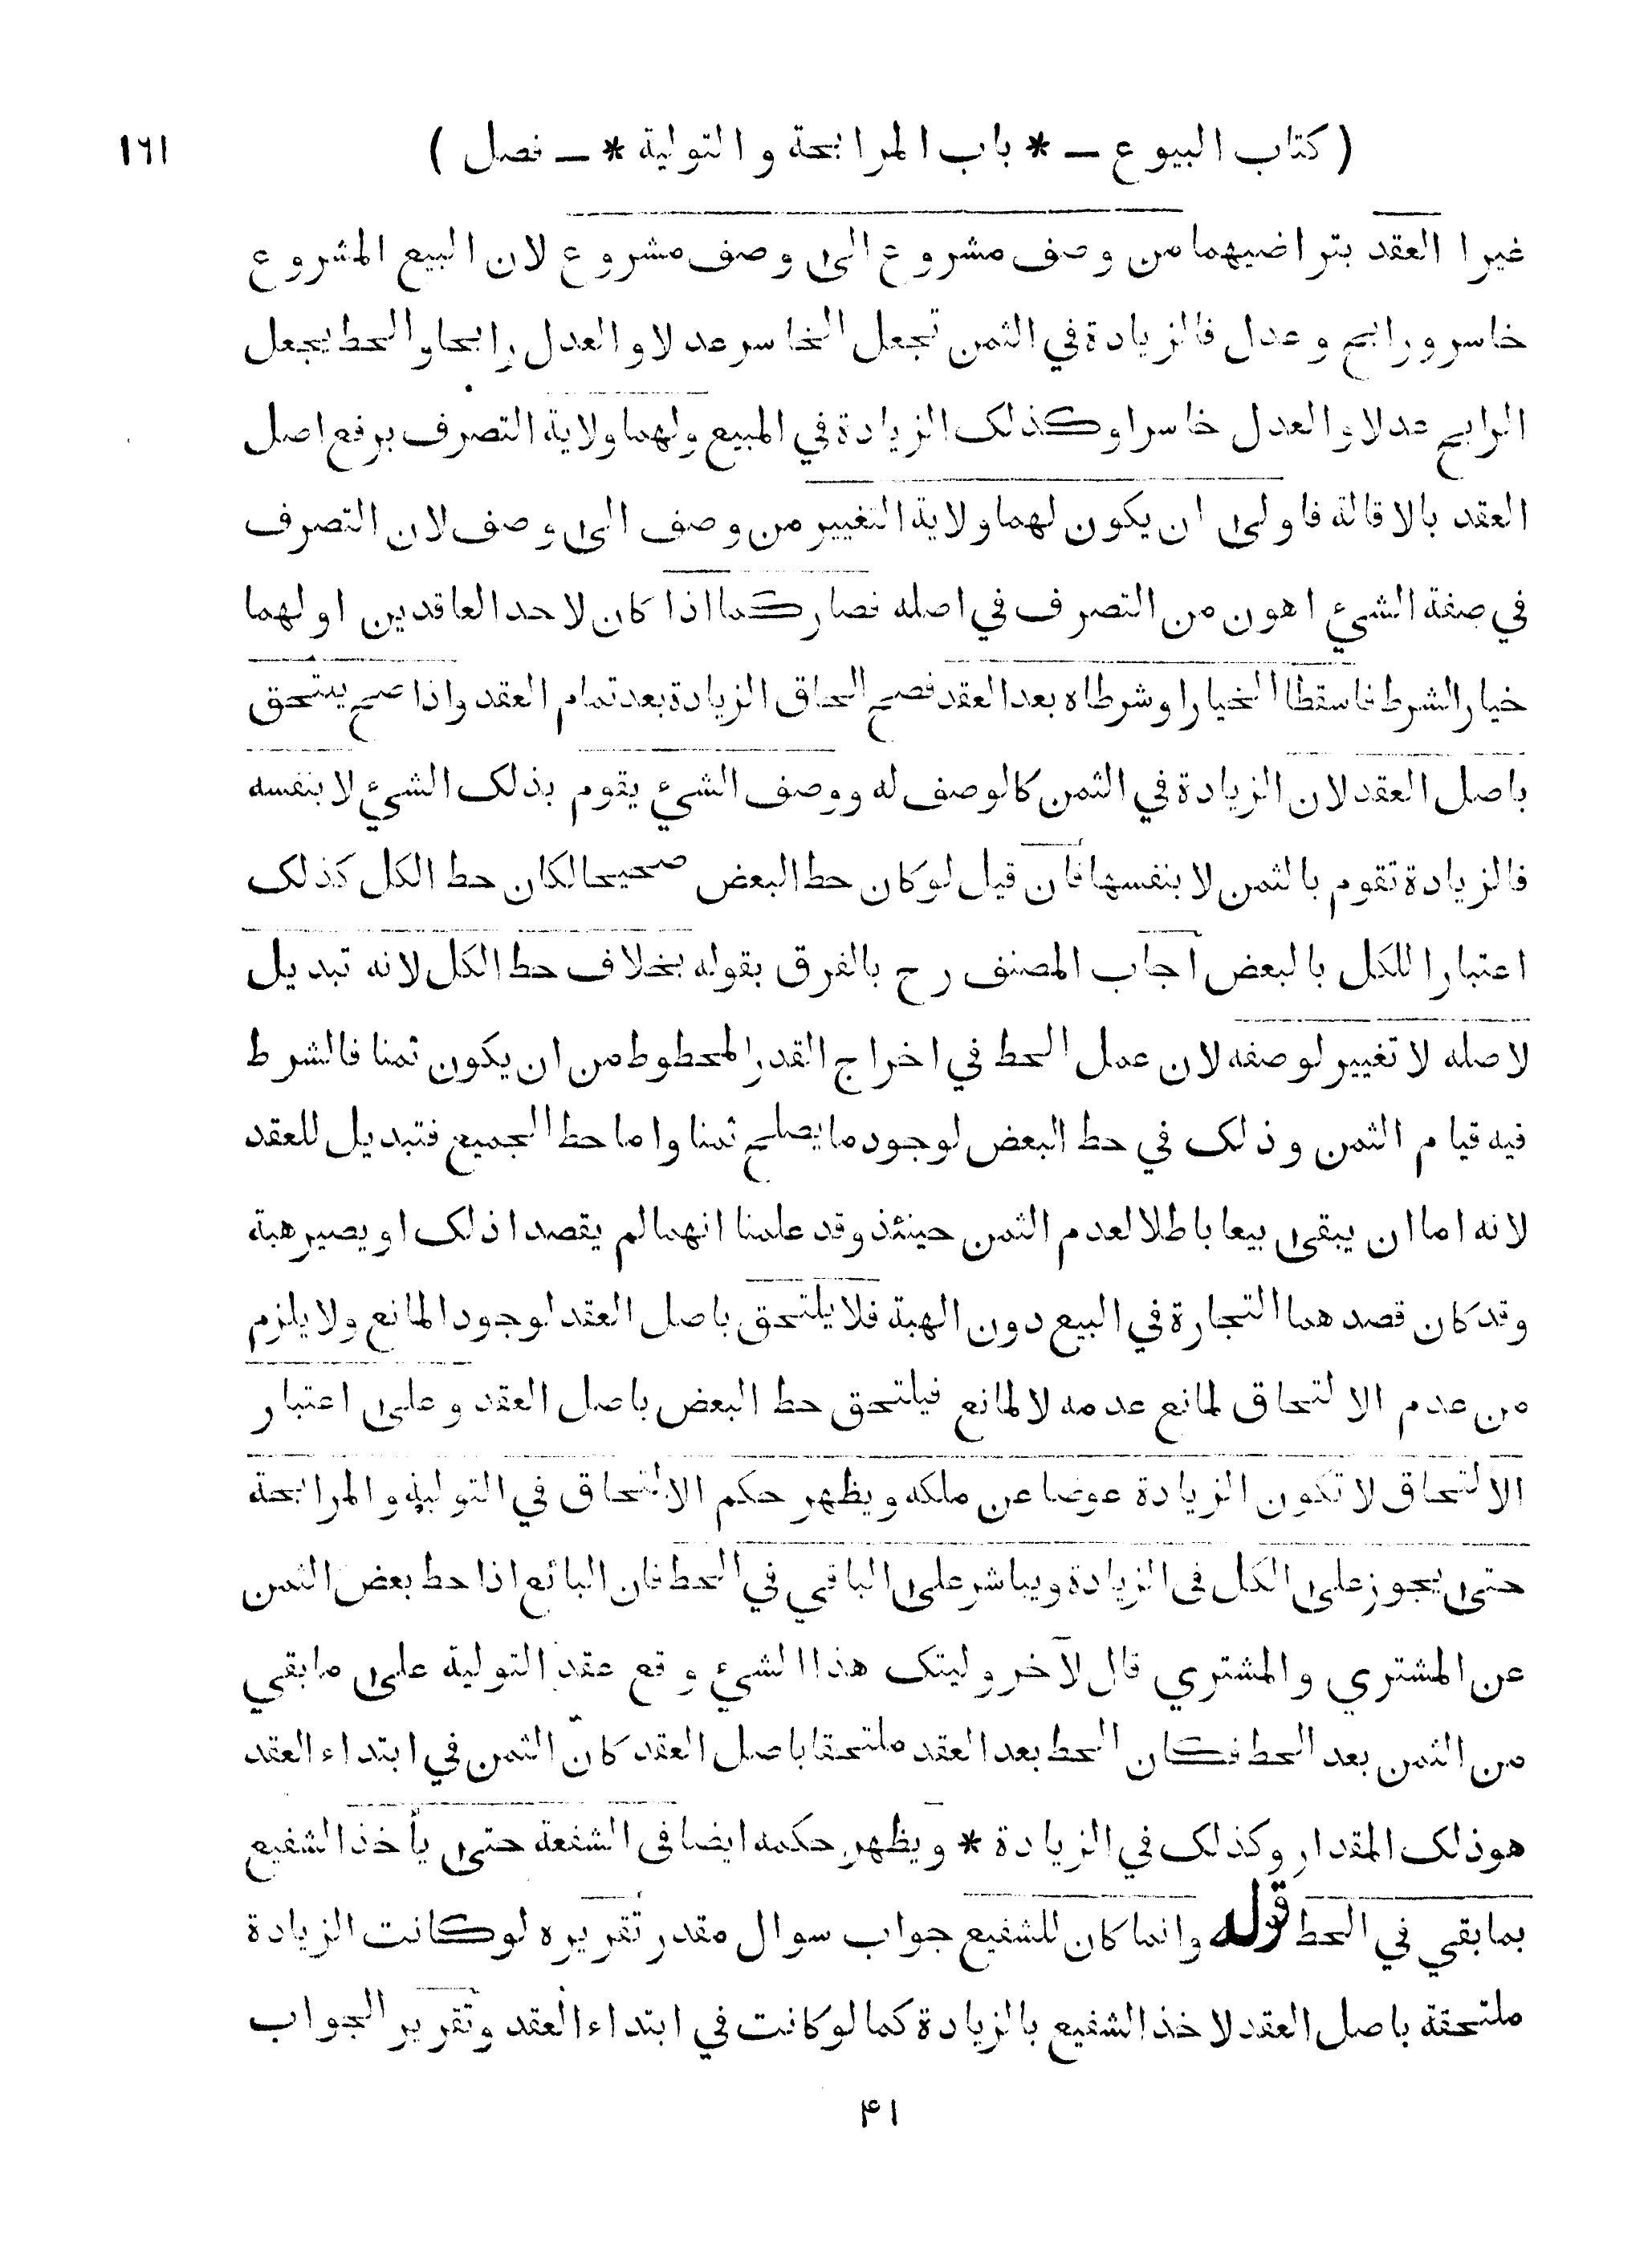 ( كتاب البيوع — * باب المرابحة والتولية * — فصل ) ١٦١
غيرا العقد بتراضيهما من وصف مشروع الى وصف مشروع لان البيع المشروع
خاسر ورابح وعدل فالزيادة في الثمن تجعل الخاسر عدلا والعدل رابحا والحط يجعل
الرابح عدلا والعدل خاسرا وكذلك الزيادة في المبيع ولهما ولاية التصرف برفع اصل
العقد بالاقالة فاولى ان يكون لهما ولاية التغيير من وصف الى وصف لان التصرف
في صفة الشيء اهون من التصرف في اصله فصار كما اذا كان لاحد العاقدين او لهما
خيار الشرط فاسقطا الخيار او شرطاه بعد العقد فصح الحاق الزيادة بعد تمام العقد واذا صح يلتحق
باصل العقد لان الزيادة في الثمن كالوصف له ووصف الشيء يقوم بذلك الشيء لا بنفسه
فالزيادة تقوم بالثمن لا بنفسها فان قيل لو كان حط البعض صحيحا لكان حط الكل كذلك
اعتبارا للكل بالبعض اجاب المصنف رح بالفرق بقوله بخلاف حط الكل لانه تبديل
لاصله لا تغيير لوصفه لان عمل الحط في اخراج القدر المحطوط من ان يكون ثمنا فالشرط
فيه قيام الثمن وذلك في حط البعض لوجود ما يصلح ثمنا واما حط الجميع فتبديل للعقد
لانه اما ان يبقى بيعا باطلا لعدم الثمن حينئذ وقد علمنا انهما لم يقصدا ذلك او يصير هبة
وقد كان قصدهما التجارة في البيع دون الهبة فلا يلتحق باصل العقد لوجود المانع ولا يلزم
من عدم الالتحاق لمانع عدمه لا لمانع فيلتحق حط البعض باصل العقد وعلى اعتبار
الالتحاق لا تكون الزيادة عوضا عن ملكه ويظهر حكم الالتحاق في التولية والمرابحة
حتى يجوز على الكل فى الزيادة ويباشر على الباقي في الحط فان البائع اذا حط بعض الثمن
عن المشتري والمشتري قال لآخر وليتك هذا الشيء وقع عقد التولية على ما بقي
من الثمن بعد الحط فكان الحط بعد العقد ملتحقا باصل العقد كانّ الثمن في ابتداء العقد
هو ذلك المقدار وكذلك في الزيادة * ويظهر حكمه ايضا فى الشفعة حتى يأخذ الشفيع
بما بقي في الحط قوله وانما كان للشفيع جواب سوال مقدر تقريره لو كانت الزيادة
ملتحقة باصل العقد لاخذ الشفيع بالزيادة كما لو كانت في ابتداء العقد وتقرير الجواب
٤١